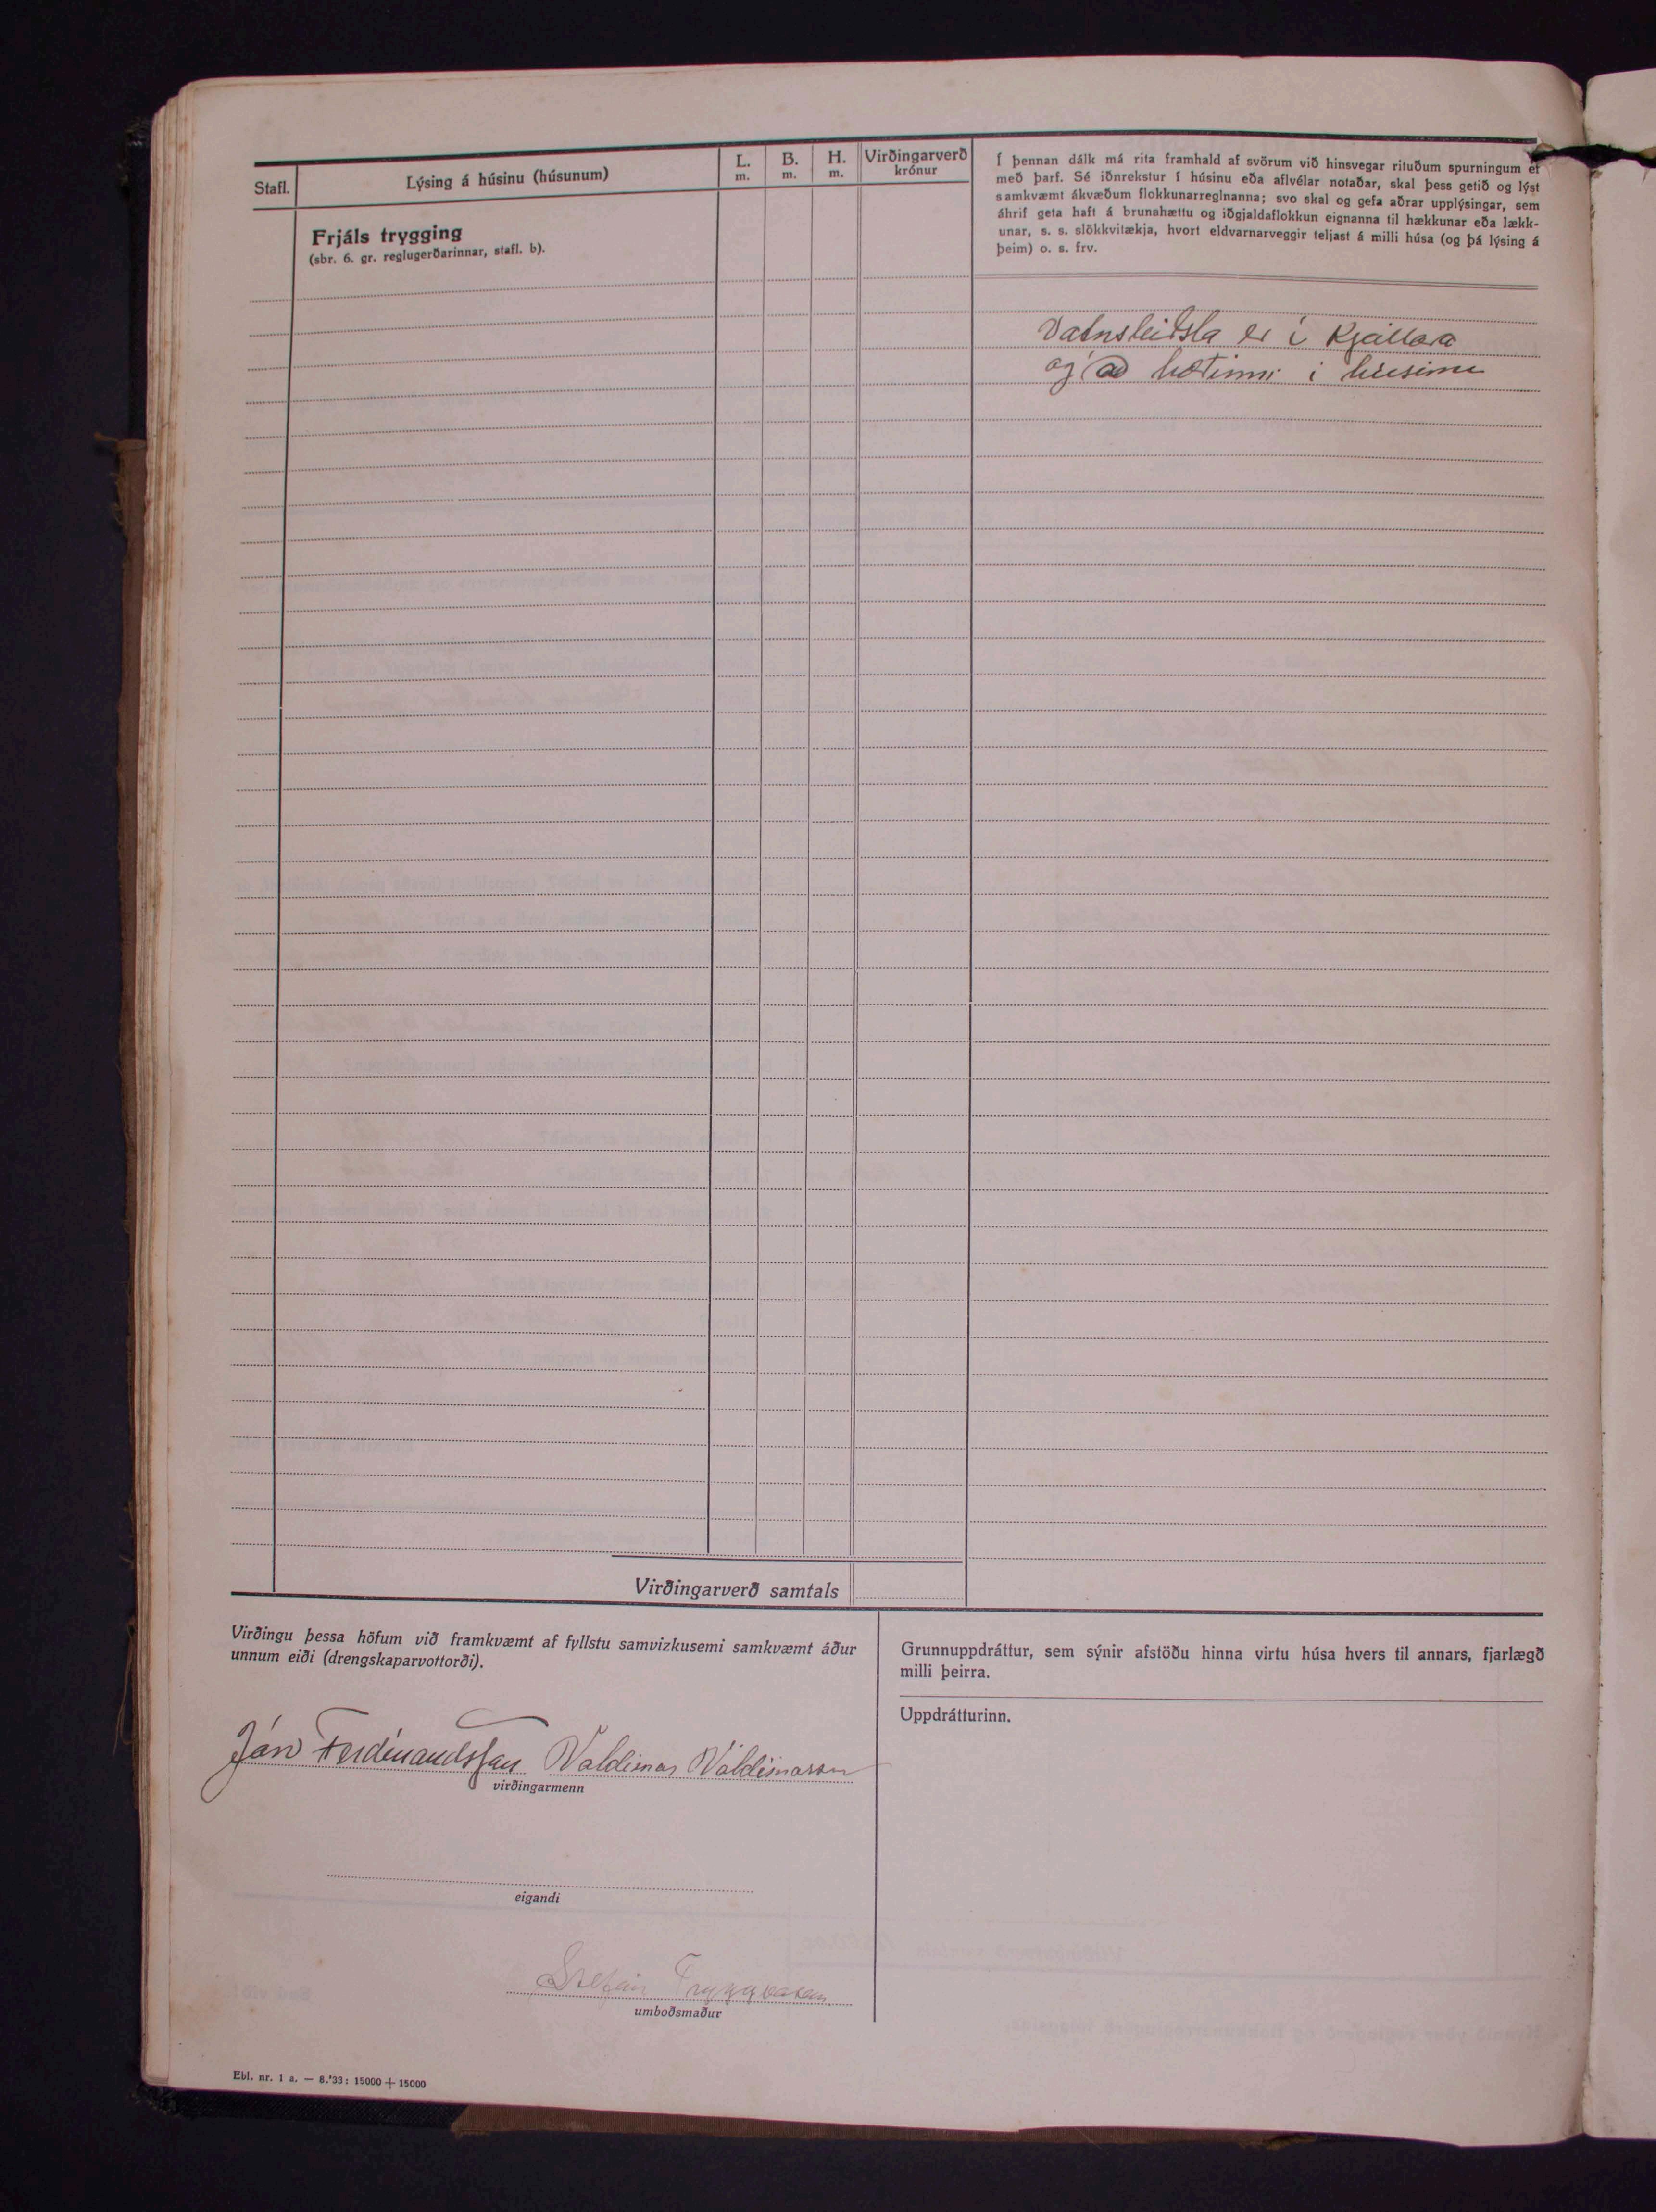 Stafl.
Lýsing á húsinu (húsunum)
L.
m.
B.
m.
H.
m.
Virðingarverð
krónur
Frjáls trygging
(sbr. 6. gr. reglugerðarinnar, stafl. b).
Í þennan dálk má rita framhald af svörum við hinsvegar rituðum spurningum ef
með þarf. Sé iðnrekstur í húsinu eða aflvélar notaðar, skal þess getið og lýst
samkvæmt ákvæðum flokkunarreglnanna; svo skal og gefa aðrar upplýsingar, sem
áhrif geta haft á brunahættu og iðgjaldaflokkun eignanna til hækkunar eða lækk-
unar, s. s. slökkvitækja, hvort eldvarnarveggir teljast á milli húsa (og þá lýsing á
þeim) o. s. frv.
Vatnsleiðsla er í Kjallara
og í húsinu
Virðingarverð samtals
Virðingu þessa höfum við framkvæmt af fyllstu samvizkusemi samkvæmt áður
unnum eiði (drengskaparvottorði).
Jón Ferdinandsson Valdimar Valdimarsson
virðingarmenn
eigandi
Stefán Tryggvason
umboðsmaður
Grunnuppdráttur, sem sýnir afstöðu hinna virtu húsa hvers til annars, fjarlægð
milli þeirra.
Uppdrátturinn.
Ebl. nr. 1 a. — 8.'33: 15000 + 15000